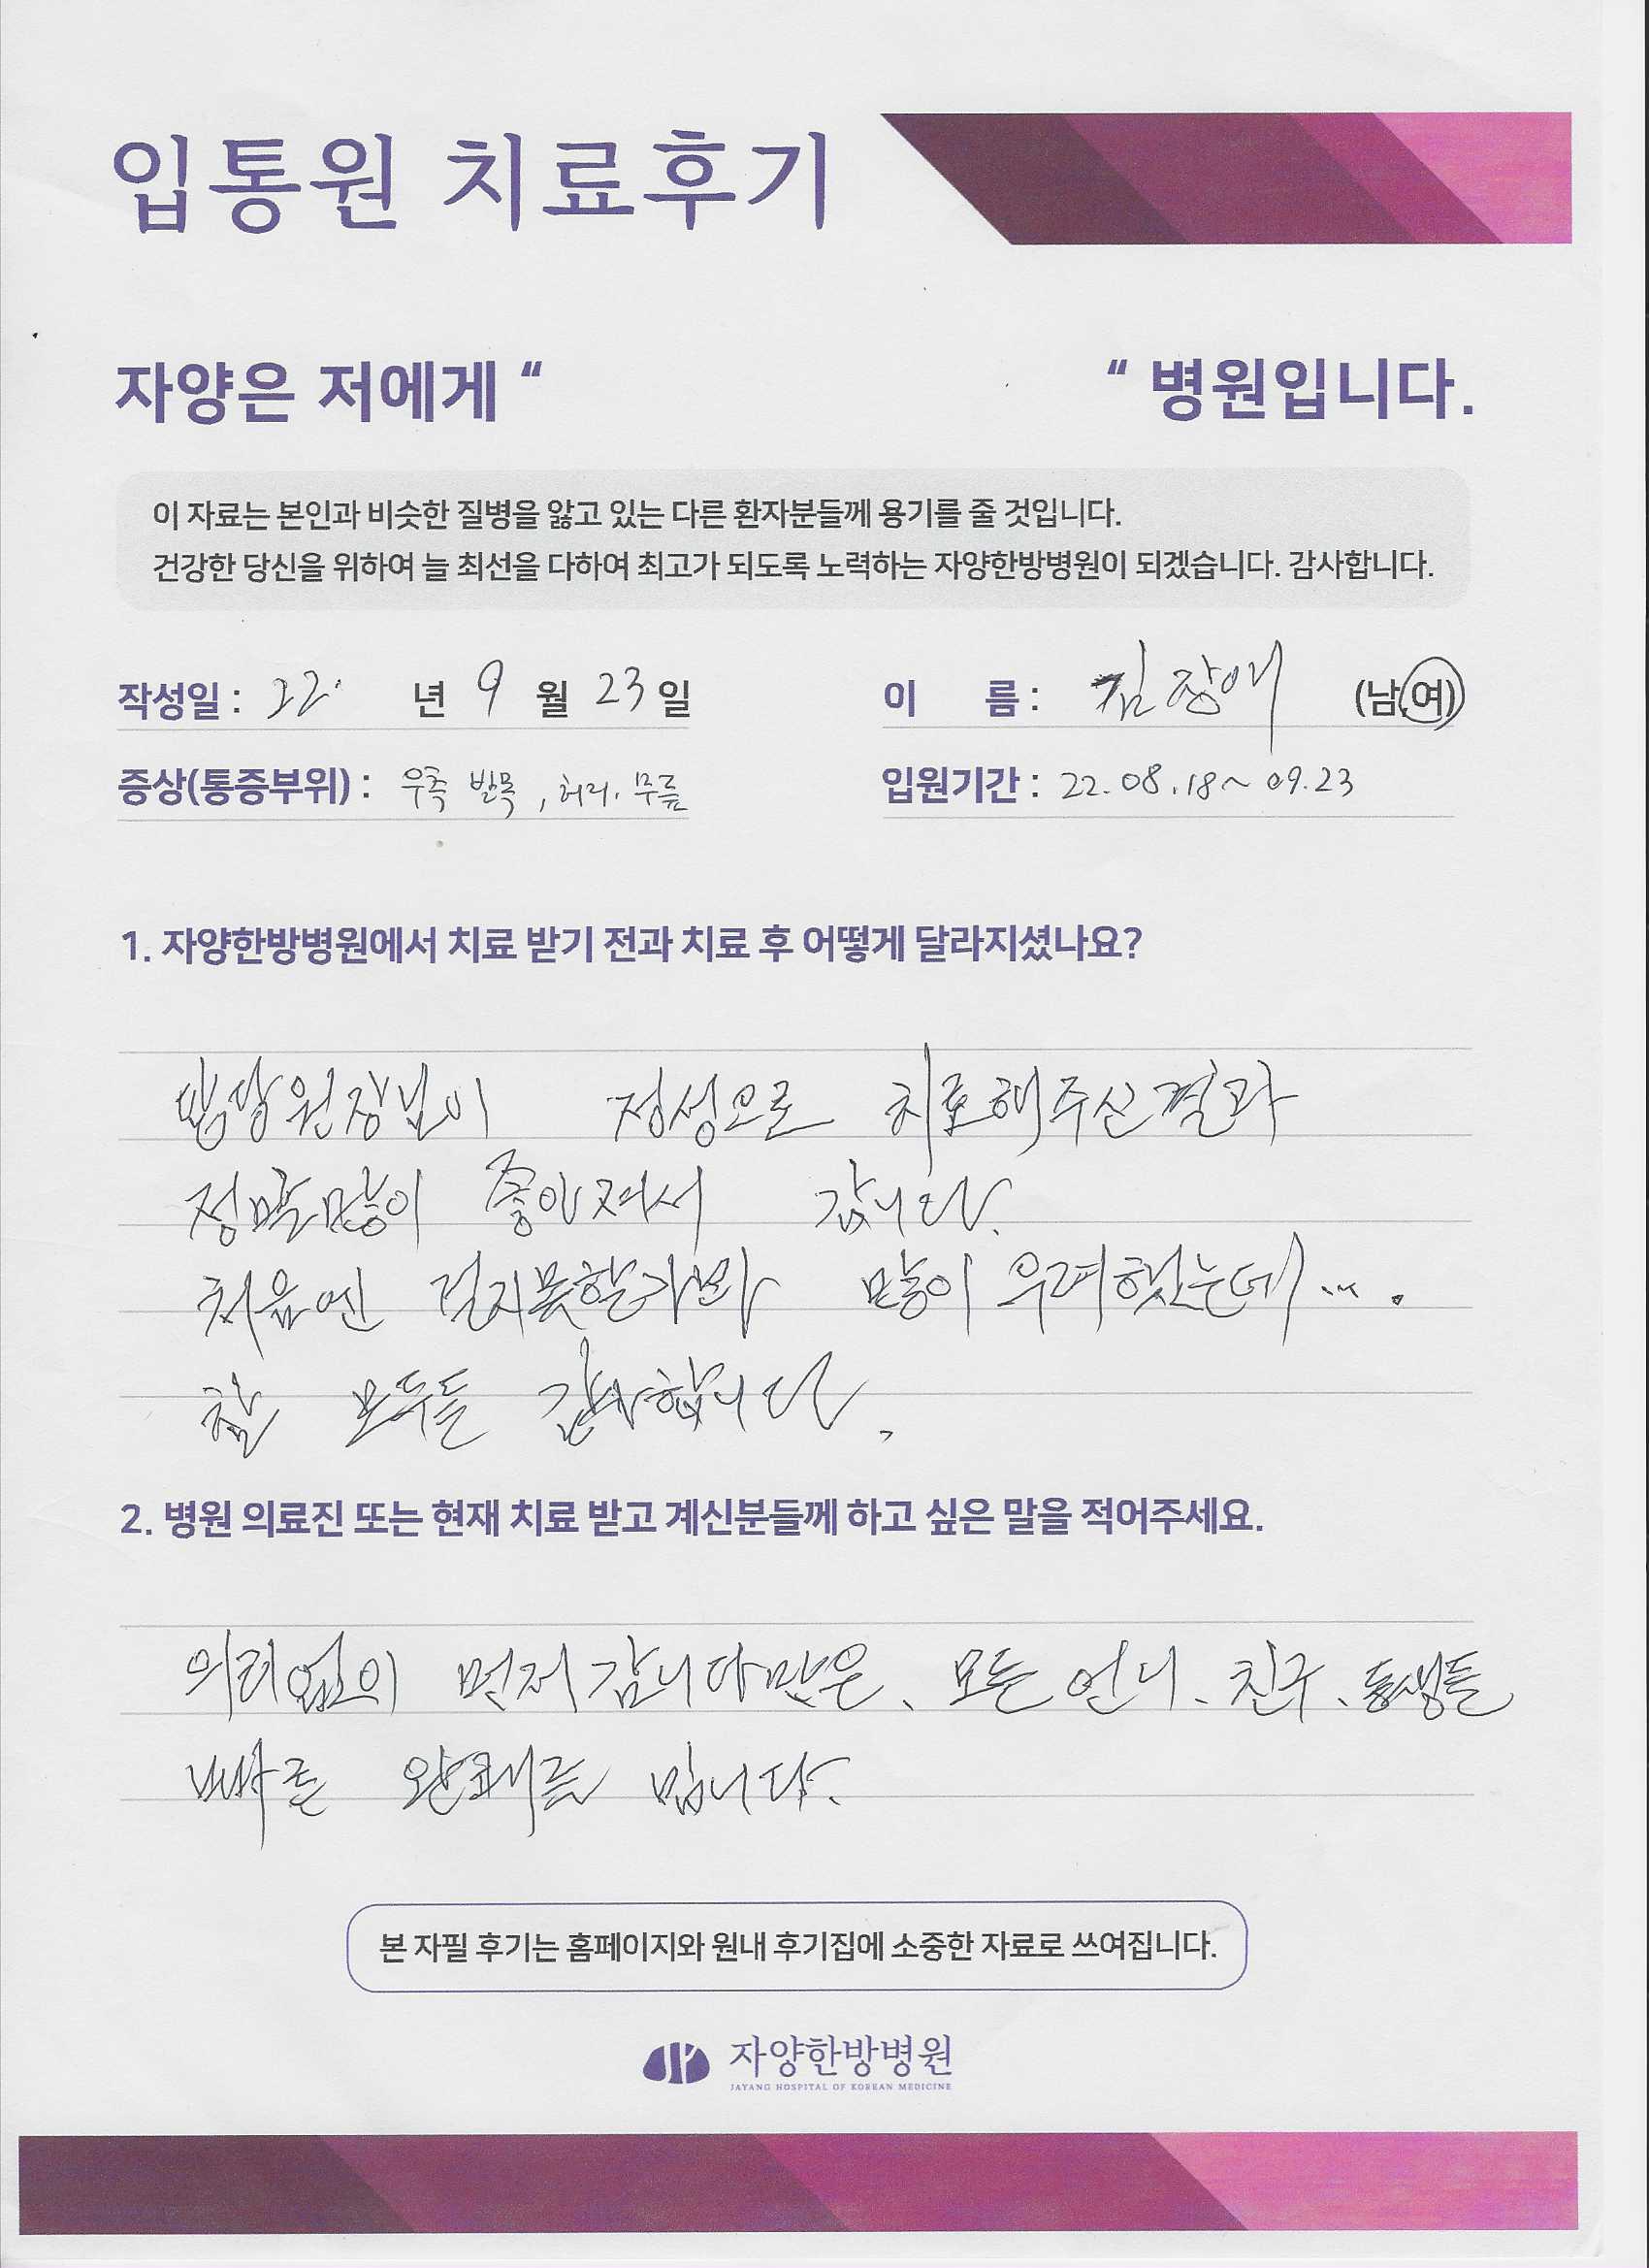 입통원 치료후기
자양은 저에게 “ “ 병원입니다.
이 자료는 본인과 비슷한 질병을 앓고 있는 다른 환자분들께 용기를 줄 것입니다.
건강한 당신을 위하여 늘 최선을 다하여 최고가 되도록 노력하는 자양한방병원이 되겠습니다. 감사합니다.
작성일 : 22. 년 9 월 23 일 이 름 : 김장애 (남,여)
증상(통증부위) : 우측 발목, 허리, 무릎 입원기간 : 22.08.18~09.23
1. 자양한방병원에서 치료 받기 전과 치료 후 어떻게 달라지셨나요?
원장님이 정성으로 치료해주신결과
정말많이 좋아져서 갑니다.
처음엔 걷지못할가봐 많이 우려했는데… .
참 모두들 감사합니다.
2. 병원 의료진 또는 현재 치료 받고 계신분들께 하고 싶은 말을 적어주세요.
의리없이 먼저 갑니다만은, 모든 언니, 친구, 동생들
빠른 완쾌를 빕니다.
본 자필 후기는 홈페이지와 원내 후기집에 소중한 자료로 쓰여집니다.
자양한방병원
JAYANG HOSPITAL OF KOREAN MEDICINE